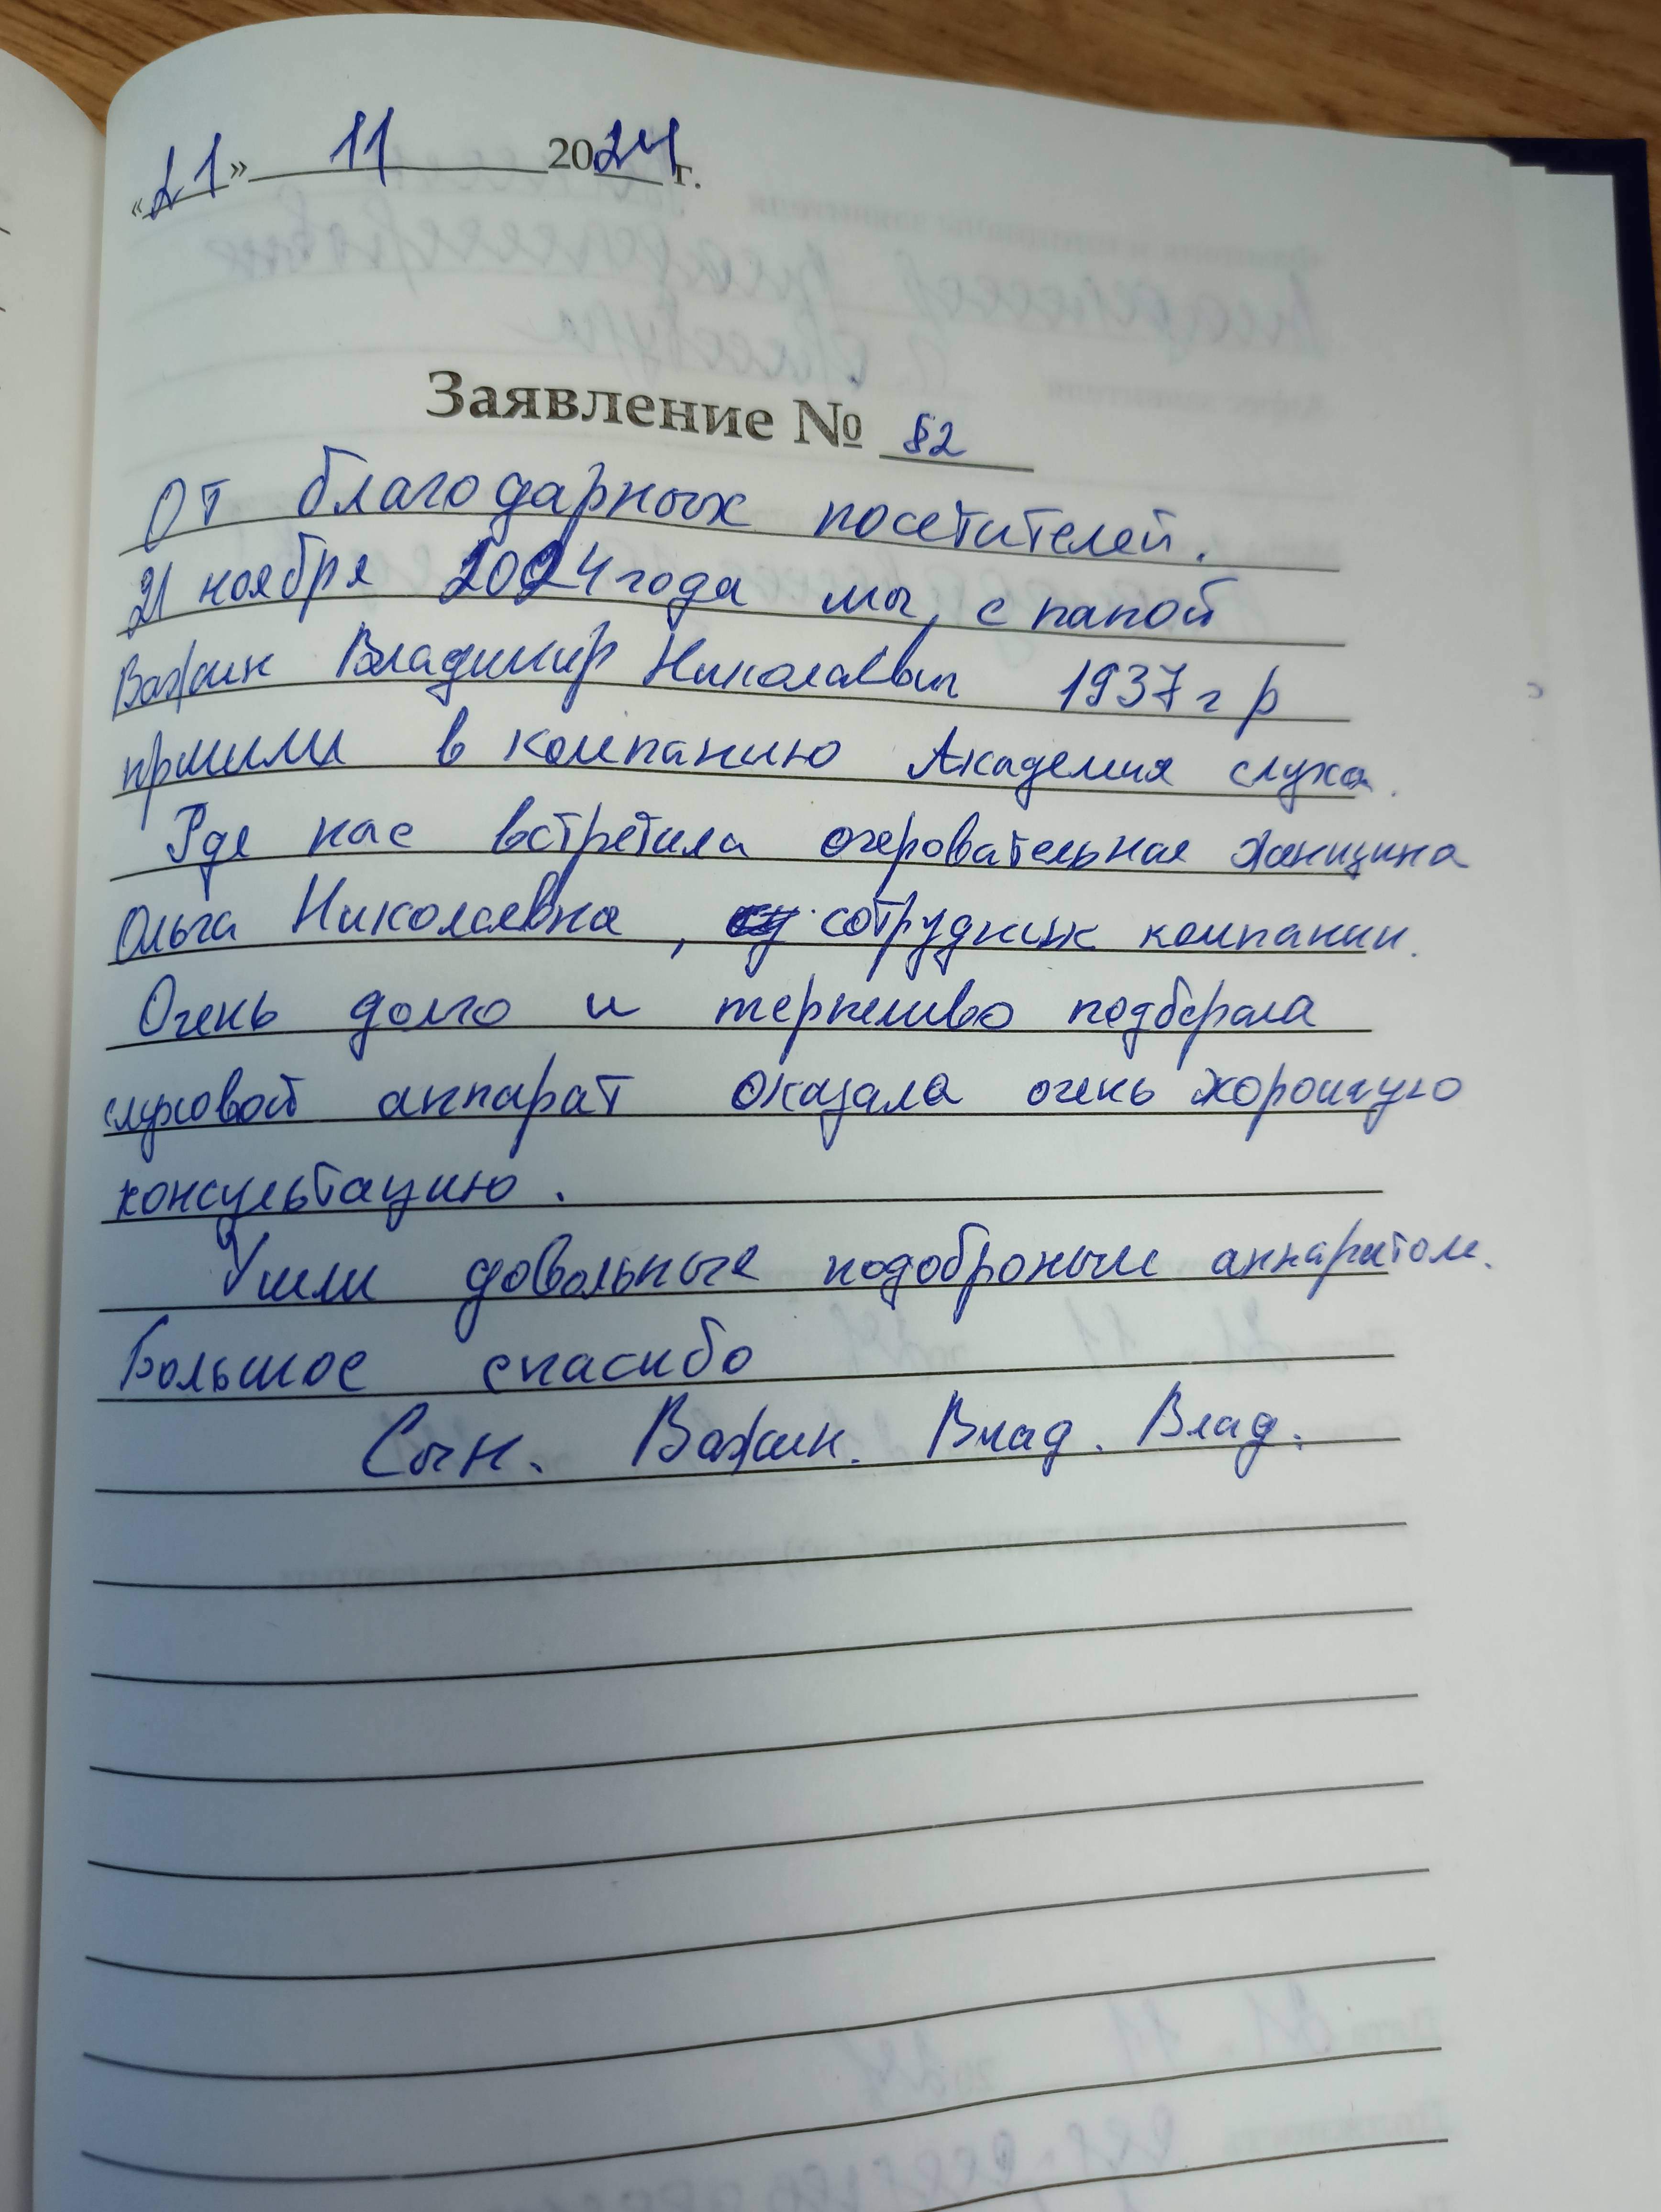 «21» 11 2024 г.
Заявление № 82
От благодарных посетителей.
21 ноября 2024 года мы, с папой
Важин Владимир Николаевич 1937 г р
пришли в компанию Академия слуха.
Где нас встретила очеровательная женщина
Ольга Николаевна, сотрудник компании.
Очень долго и терпеливо подберала
слуховой аппарат оказала очень хорошую
консультацию.
Ушли довольные подоброным аппаратом.
Большое спасибо
Сын. Важин. Влад. Влад.